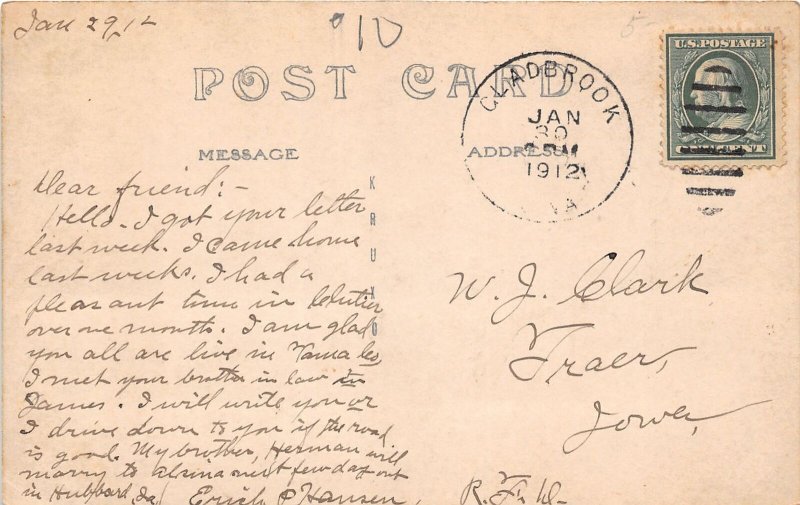 Jan 29, 12
10
5-
POST CARD
U.S. POSTAGE
CLADBROOK
JAN
30
PM
1912
IA
MESSAGE
ADDRESS
KRUXO
Dear friend:-
Hello. I got your letter
last week. I came home
last weeks. I had a
pleasant time in Clutier
over one month. I am glad
you all are live in Tama Co,
I met your brother in law in
James. I will write you or
I drive down to you if the road
is good. My brother, Herman will
marry to next few day out
in Hubbard Ia Erich P Hansen,
W. J. Clark
Traer,
Iowa,
R. F. D-